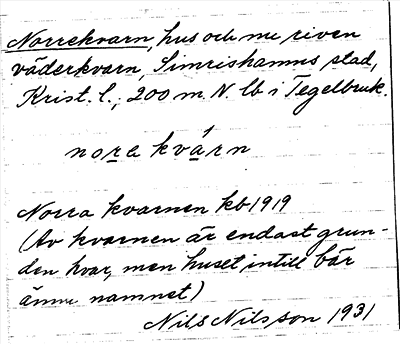 Norrekvarn, hus och nu riven
väderkvarn, Simrishamns stad,
Krist. l., 200 m N. lb i Tegelbruk.
nora kvárn
Norra kvarnen kb 1919
(Av kvarnen är endast grun-
den kvar, men huset intill bär
ännu namnet)
Nils Nilsson 1931